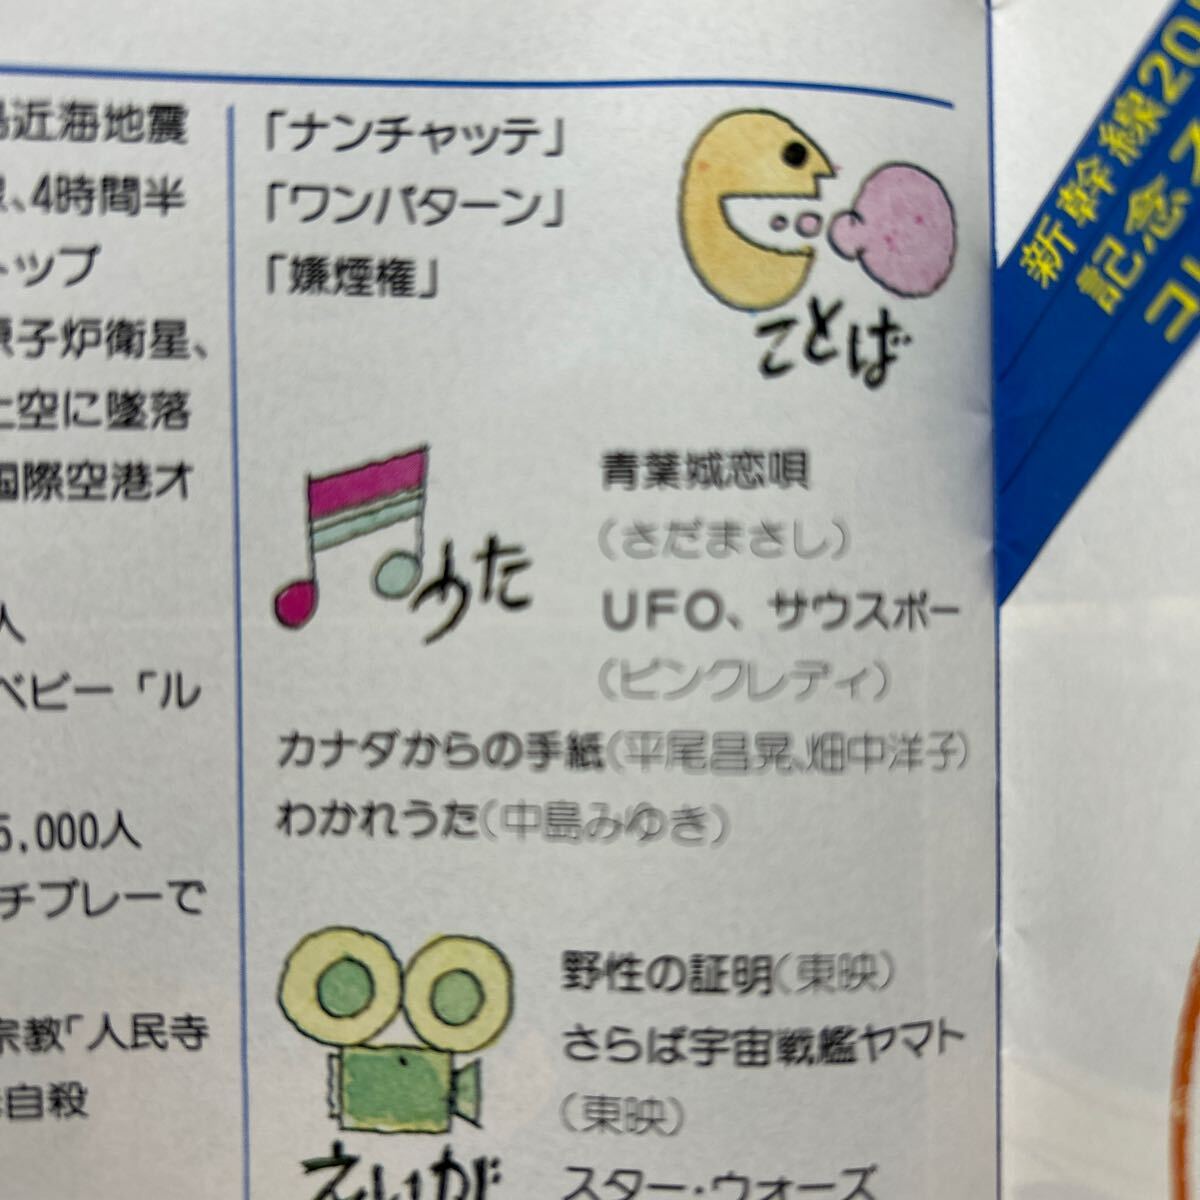 島近海地震
、4時間半
トップ
原子炉衛星、
上空に墜落
国際空港オ
人
ベビー「ル
5,000人
チプレーで
宗教「人民寺
自殺
「ナンチャッテ」
「ワンパターン」
「嫌煙権」
ことば
うた
青葉城恋唄
(さだまさし)
UFO、サウスポー
(ピンクレディ)
カナダからの手紙(平尾昌晃、畑中洋子)
わかれうた(中島みゆき)
えいが
野性の証明(東映)
さらば宇宙戦艦ヤマト
(東映)
スター・ウォーズ
新幹線20
記念ス
コレ